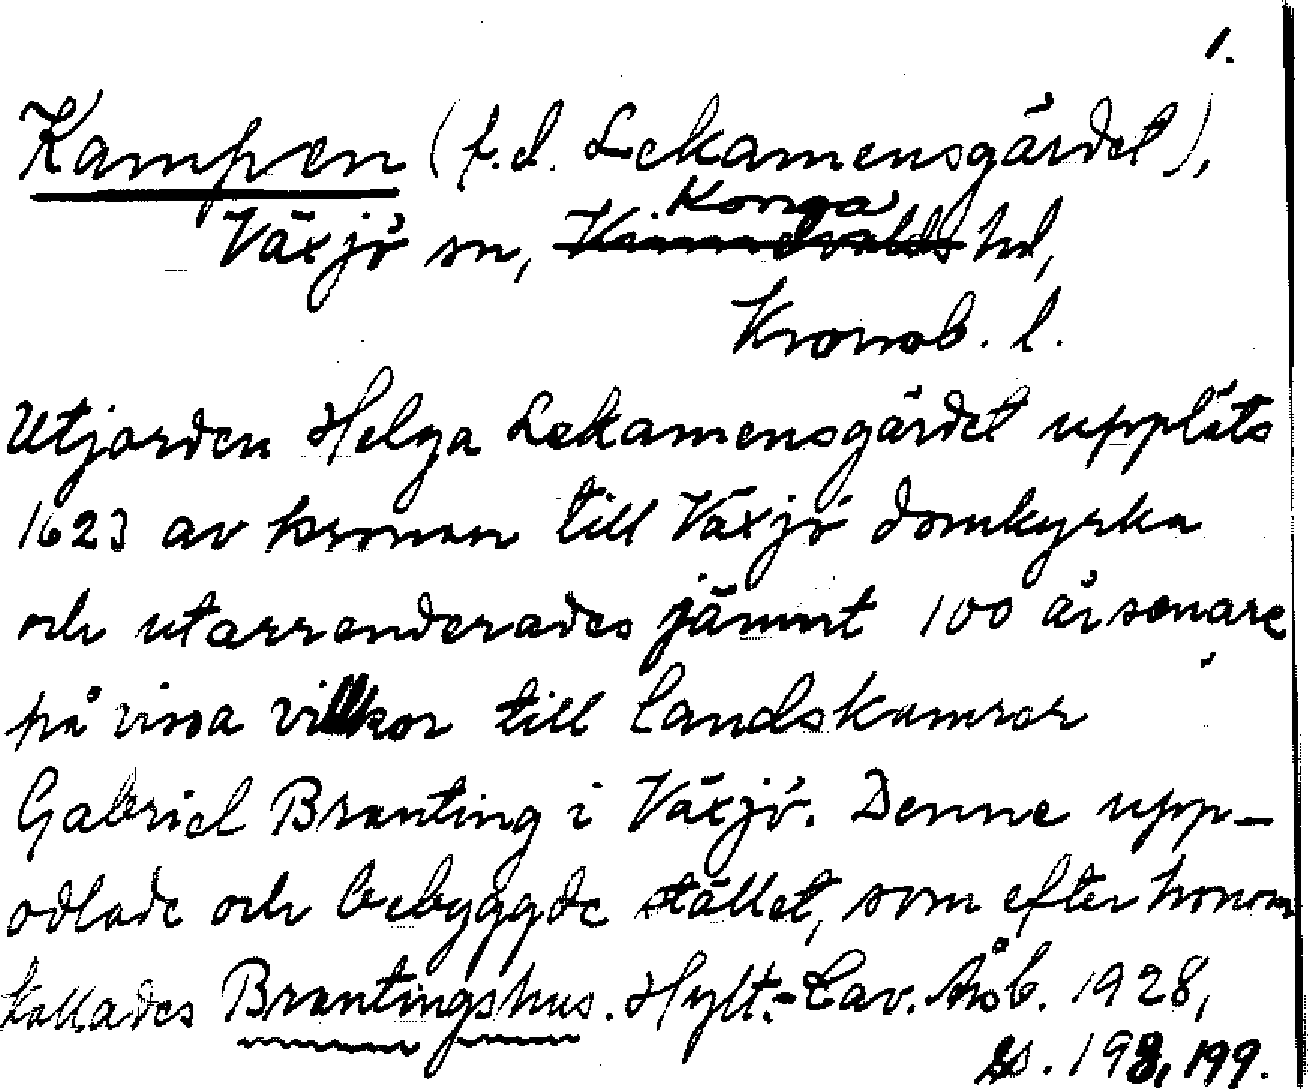 1.
Kampen (f.d. Lekamensgärdet),
Konga
Växjö sn, Kinnevalds hd,
Kronob. l.
Utjorden Helga Lekamensgärdet upplåts
1623 av kronan till Växjö domkyrka
och utarrenderades jämnt 100 år senare
på vissa villkor till landskamrer
Gabriel Branting i Växjö. Denne upp-
odlade och bebyggde stället, som efter honom
kallades Brantingshus. Hylt.-Cav. Åsb. 1928,
ss. 198, 199.